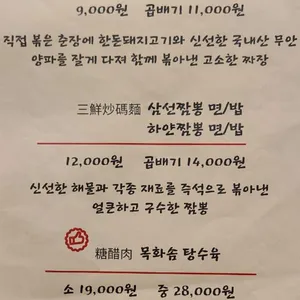 9,000원 곱배기 11,000원
직접 볶은 춘장에 한돈돼지고기와 신선한 국내산 무안
양파를 잘게 다져 함께 볶아낸 고소한 짜장
三鮮炒碼麵 삼선짬뽕 면/밥
하얀짬뽕 면/밥
12,000원 곱배기 14,000원
신선한 해물과 각종 재료를 즉석으로 볶아낸
얼큰하고 구수한 짬뽕
糖醋肉 목화솜 탕수육
소 19,000원 중 28,000원